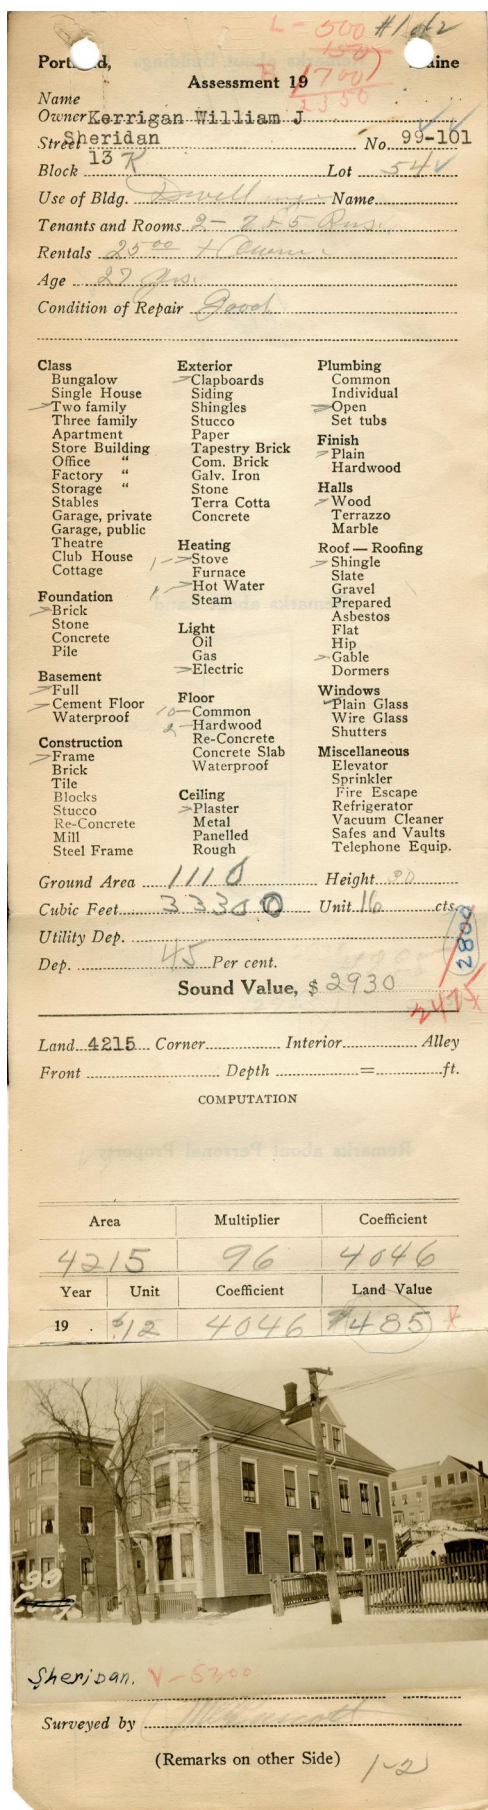 L - 500 #1 of 2
150
Portland, Maine
B 1700
Assessment 19
2350
Name
Owner Kerrigan William J
Street Sheridan No. 99-101
Block 13 K Lot 54
Use of Bldg. Dwelling Name
Tenants and Rooms 2 - 7 & 5 Rms.
Rentals 25 00 + Owner
Age 27 yrs.
Condition of Repair Good
Class
Bungalow
Single House
Two family
Three family
Apartment
Store Building
Office "
Factory "
Storage "
Stables
Garage, private
Garage, public
Theatre
Club House
Cottage
Foundation
Brick
Stone
Concrete
Pile
Basement
Full
Cement Floor
Waterproof
Construction
Frame
Brick
Tile
Blocks
Stucco
Re-Concrete
Mill
Steel Frame
Exterior
Clapboards
Siding
Shingles
Stucco
Paper
Tapestry Brick
Com. Brick
Galv. Iron
Stone
Terra Cotta
Concrete
Heating
1 - Stove
Furnace
1 Hot Water
Steam
Light
Oil
Gas
Electric
Floor
10 - Common
2 - Hardwood
Re-Concrete
Concrete Slab
Waterproof
Ceiling
Plaster
Metal
Panelled
Rough
Plumbing
Common
Individual
Open
Set tubs
Finish
Plain
Hardwood
Halls
Wood
Terrazzo
Marble
Roof — Roofing
Shingle
Slate
Gravel
Prepared
Asbestos
Flat
Hip
Gable
Dormers
Windows
Plain Glass
Wire Glass
Shutters
Miscellaneous
Elevator
Sprinkler
Fire Escape
Refrigerator
Vacuum Cleaner
Safes and Vaults
Telephone Equip.
Ground Area 1110 Height 30
Cubic Feet 33300 Unit 16 cts.
Utility Dep.
2800
Dep. 45 Per cent.
Sound Value, $ 2930
2475
Land 4215 Corner Interior Alley
Front Depth = ft.
COMPUTATION
Area Multiplier Coefficient
4215 96 4046
Year Unit Coefficient Land Value
19 . $12 4046 $485
99
Sheridan. V - 5200
Surveyed by
(Remarks on other Side)
1-2